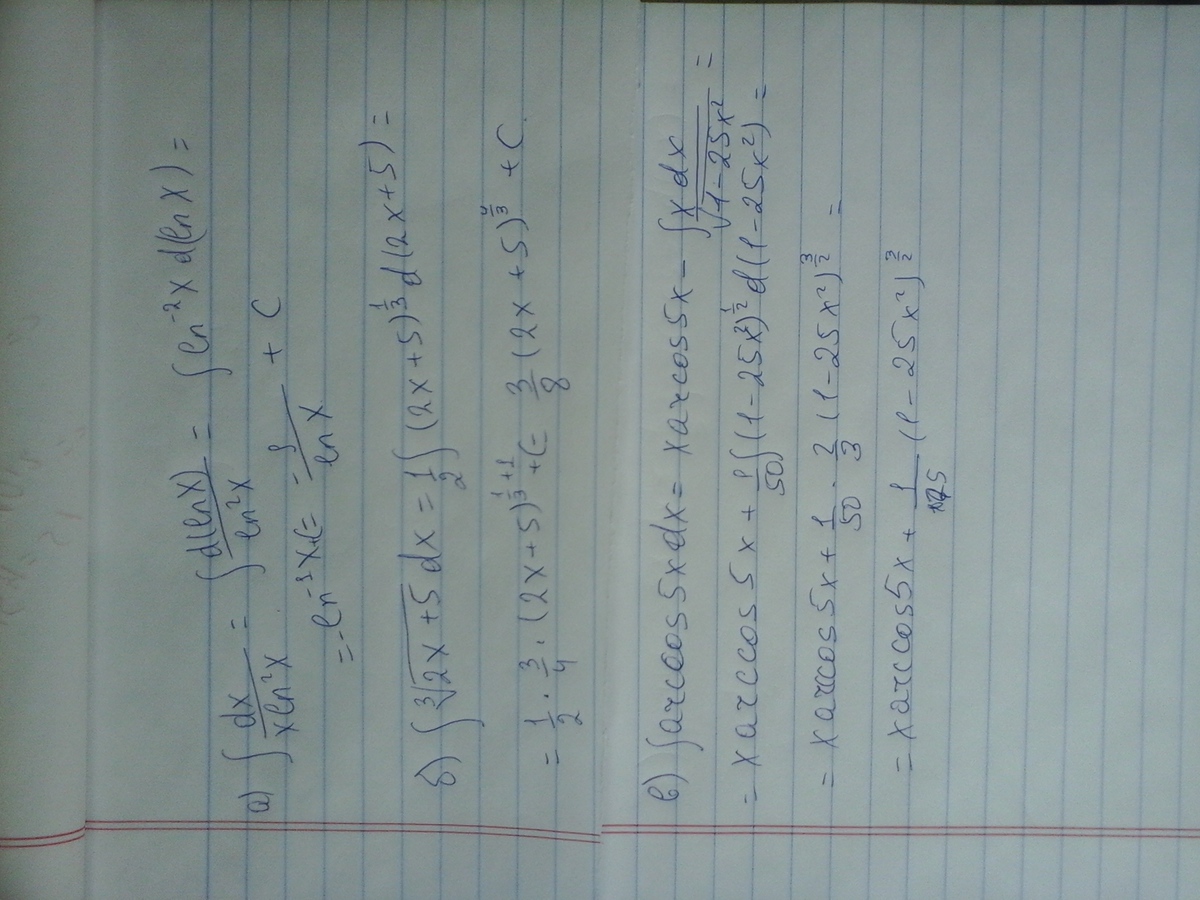 а) ∫ dx/(x ln²x) = ∫ d(ln x)/(ln²x) = ∫ ln⁻²x d(ln x) =
= -ln⁻¹x + C = -1/(ln x) + C
б) ∫ ∛(2x+5) dx = 1/2 ∫ (2x+5)^(1/3) d(2x+5) =
= 1/2 · 3/4 · (2x+5)^(1/3+1) + C = 3/8 (2x+5)^(4/3) + C.
в) ∫ arccos 5x dx = x arcos 5x - ∫ x dx/√(1-25x²) =
= x arccos 5x + 1/50 ∫ (1-25x²)^(1/2) d(1-25x²) =
= x arccos 5x + 1/50 · 2/3 (1-25x²)^(3/2) =
= x arccos 5x + 1/75 (1-25x²)^(3/2)